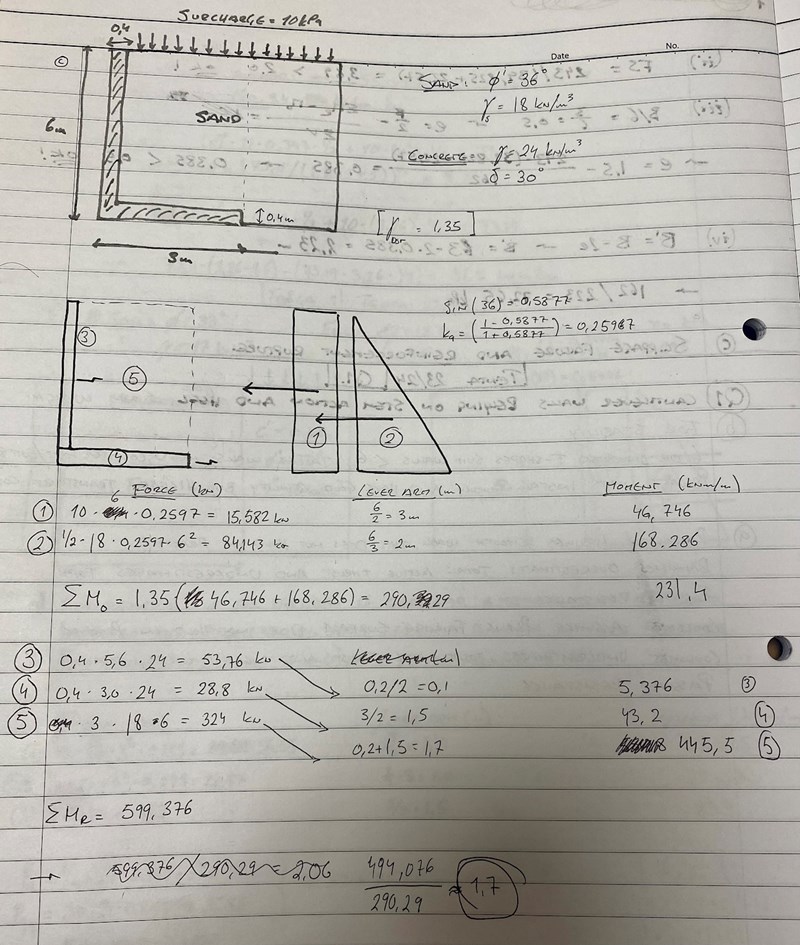 SURCHARGE = 10kPa
0,4
Date
No.
(c)
6m
SAND
SAND: φ' = 36°
γs = 18 kN/m³
CONCRETE γ = 24 kN/m³
δ = 30°
0,4m
[γ = 1,35]
3m
sin(36) = 0,5877
ka = (1 - 0,5877 / 1 + 0,5877) = 0,25987
③
⑤
④
①
②
FORCE (kN)
LEVER ARM (m)
MOMENT (kNm/m)
① 10 · 6 · 0,2597 = 15,582 kN
6/2 = 3m
46,746
② 1/2 · 18 · 0,2597 · 6² = 84,143 kN
6/3 = 2m
168.286
ΣMo = 1,35 (46,746 + 168,286) = 290,29
231,4
③ 0,4 · 5,6 · 24 = 53,76 kN
④ 0,4 · 3,0 · 24 = 28,8 kN
0,2/2 = 0,1
5,376 ③
⑤ 3 · 18 · 6 = 324 kN
3/2 = 1,5
43,2 ④
0,2+1,5 = 1,7
445,5 ⑤
ΣMR = 599,376
→ 599,376 / 290,29 = 2,06
494,076 / 290,29 ≈ 1,7